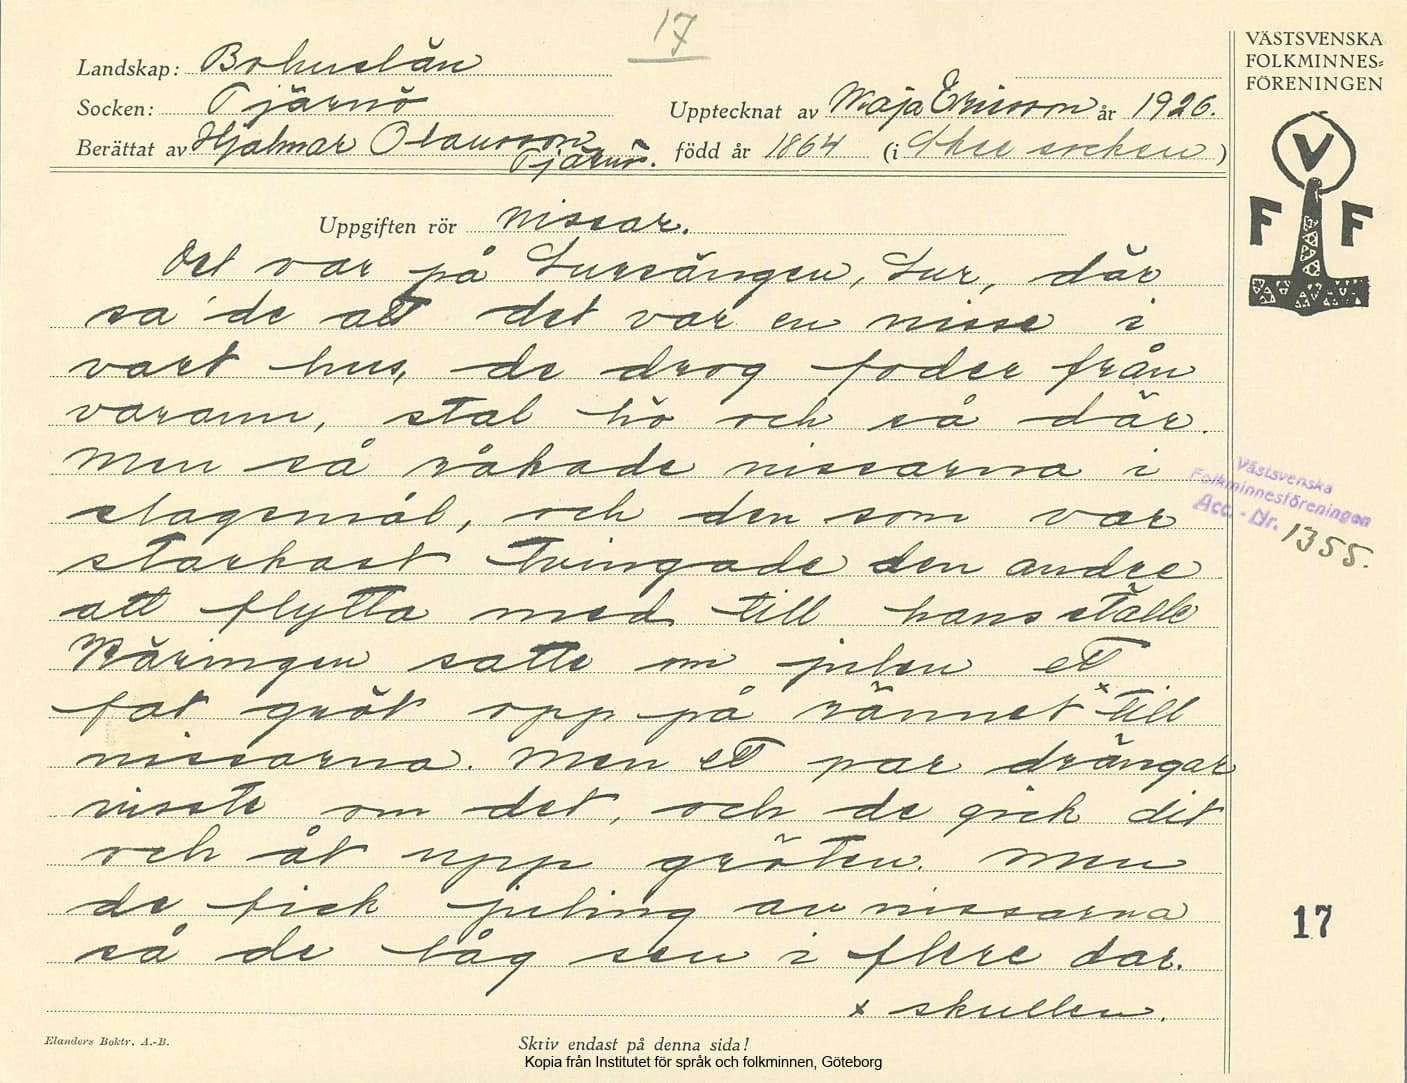 17
VÄSTSVENSKA
FOLKMINNES-
FÖRENINGEN
Landskap: Bohuslän
Socken: Tjärnö
Upptecknat av Maja Ericson år 1926.
Berättat av Hjalmar Olausson
Tjärnö. född år 1864 (i Skee socken)
V
F F
Uppgiften rör nissar.
Det var på Lursängen, Lur, där
sa' de att det var en nisse i
vart hus, de drog foder från
varann, stal hö och så där.
Men så råkade nissarna i
slagsmål, och den som var
starkast tvingade den andre
att flytta med till hans ställe
Käringen satte om julen ett
fat gröt opp på rännet x till
nissarna. Men ett par drängar
visste om det, och de gick dit
och åt upp gröten. Men
de fick juling av nissarna
så de låg sen i flere dar.
x skullen.
Västsvenska
Folkminnesföreningen
Acc. - Nr. 1355.
17
Elanders Boktr. A.-B.
Skriv endast på denna sida!
Kopia från Institutet för språk och folkminnen, Göteborg